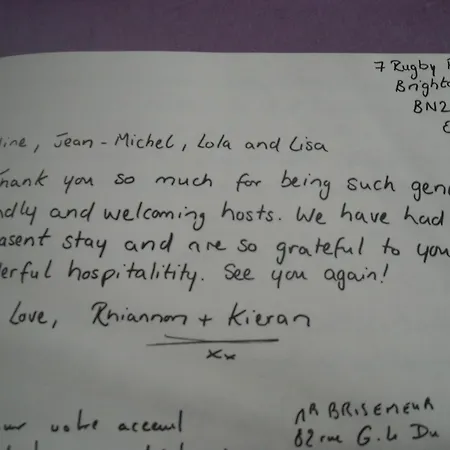 7 Rugby
Brighto
BN2
ine, Jean-Michel, Lola and Lisa
hank you so much for being such gene
ndly and welcoming hosts. We have had
asent stay and are so grateful to you
derful hospitalitity. See you again!
Love, Rhiannon + Kieran
xx
votre accueil
MR BRISEMEUR
82 rue G. le Du